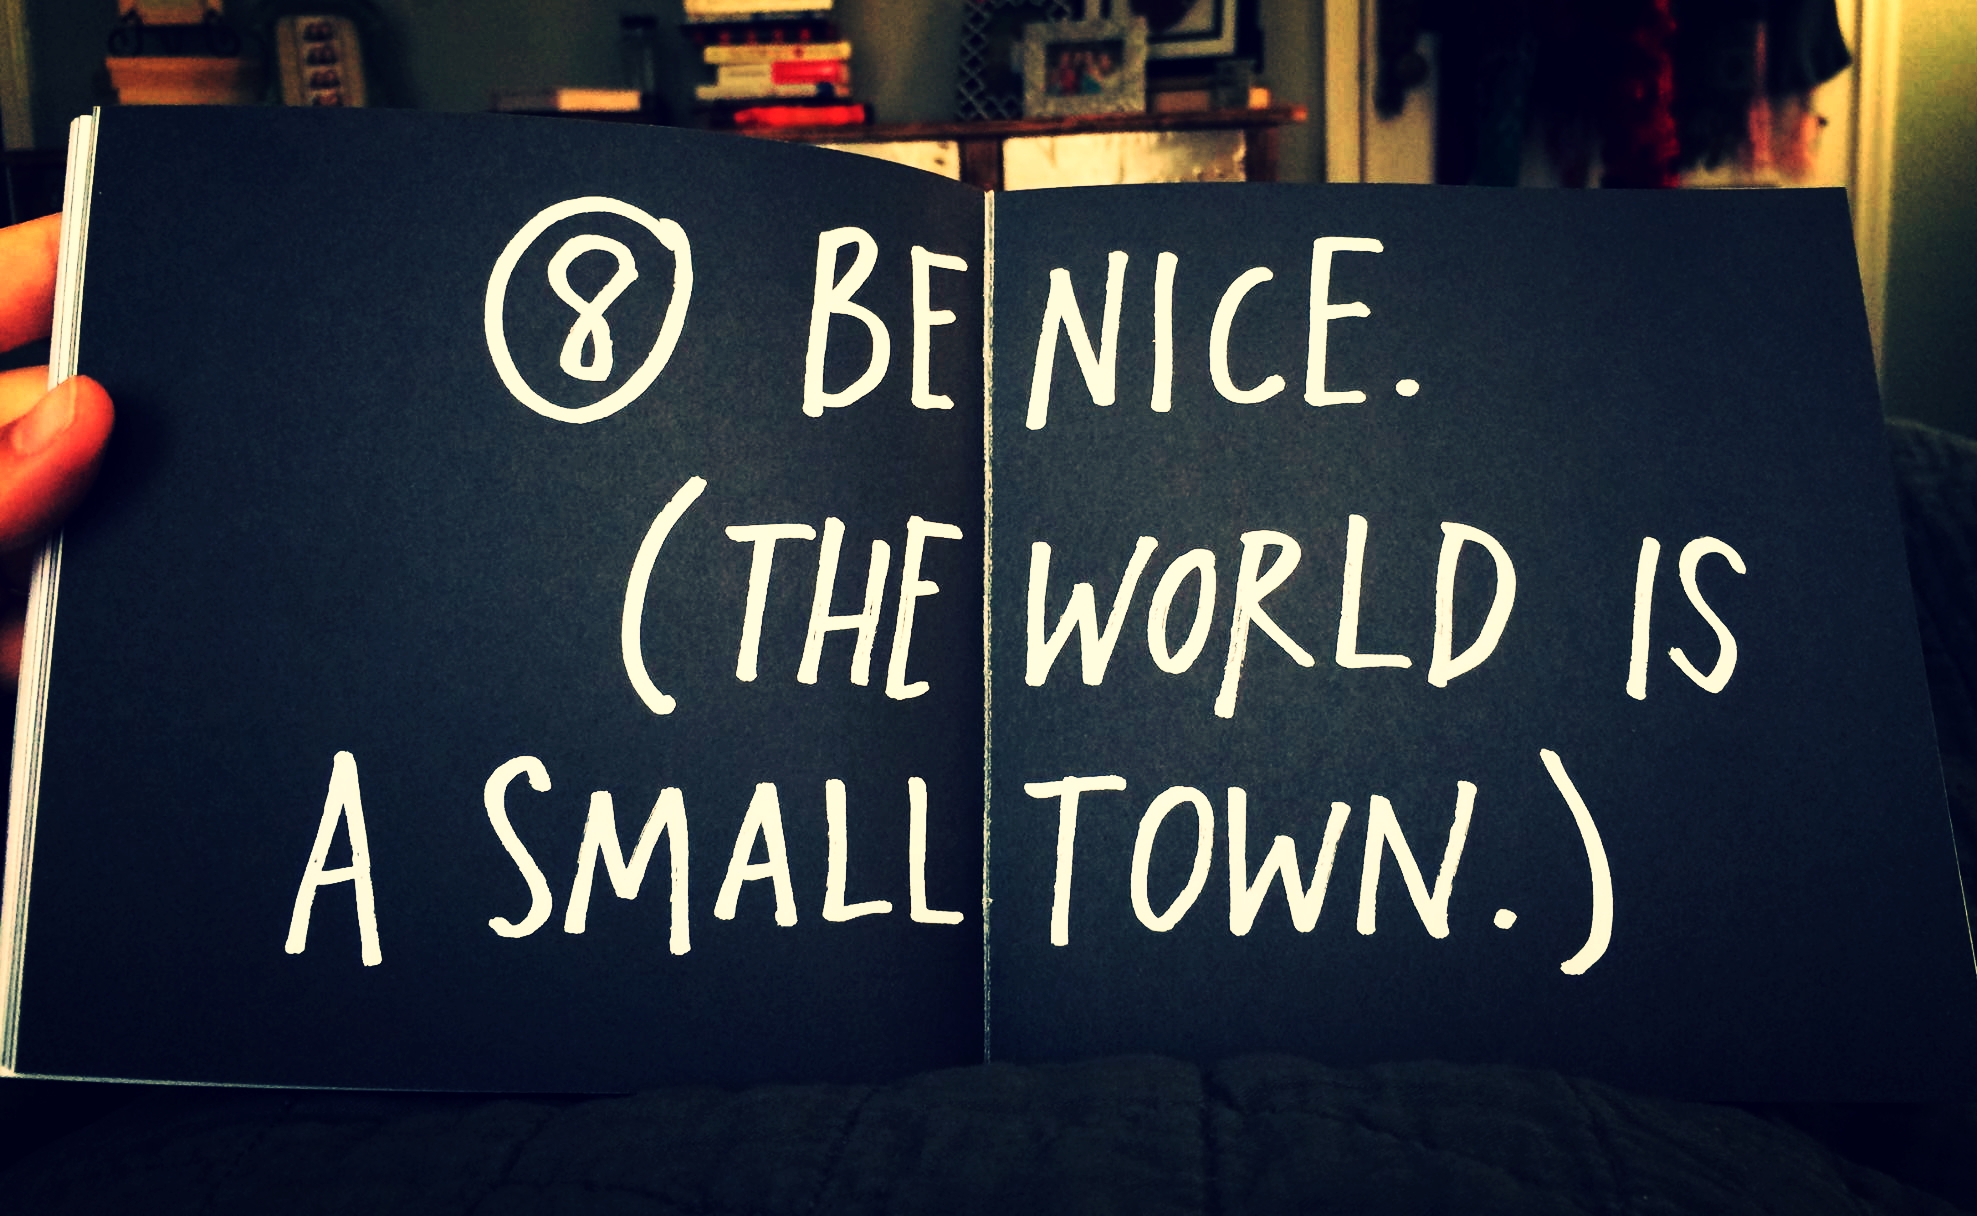 8 BE NICE.
(THE WORLD IS
A SMALL TOWN.)